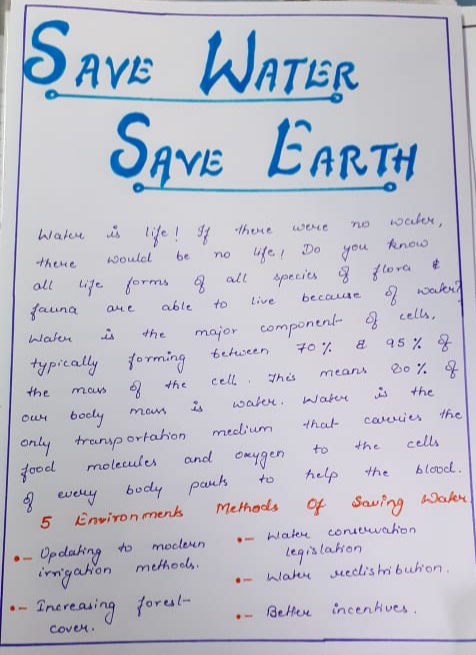 SAVE WATER
SAVE EARTH
Water is life! If there were no water,
there would be no life! Do you know
all life forms of all species of flora &
fauna are able to live because of water?
Water is the major component of cells,
typically forming between 70% & 95% of
the mass of the cell. This means 80% of
our body mass is water. Water is the
only transportation medium that carries the
food molecules and oxygen to the cells
of every body parts to help the blood.
5 Environments Methods Of Saving Water
•- Updating to modern
irrigation methods.
•- Increasing forest-
cover.
•- Water conservation
legislation
•- Water redistribution.
•- Better incentives.